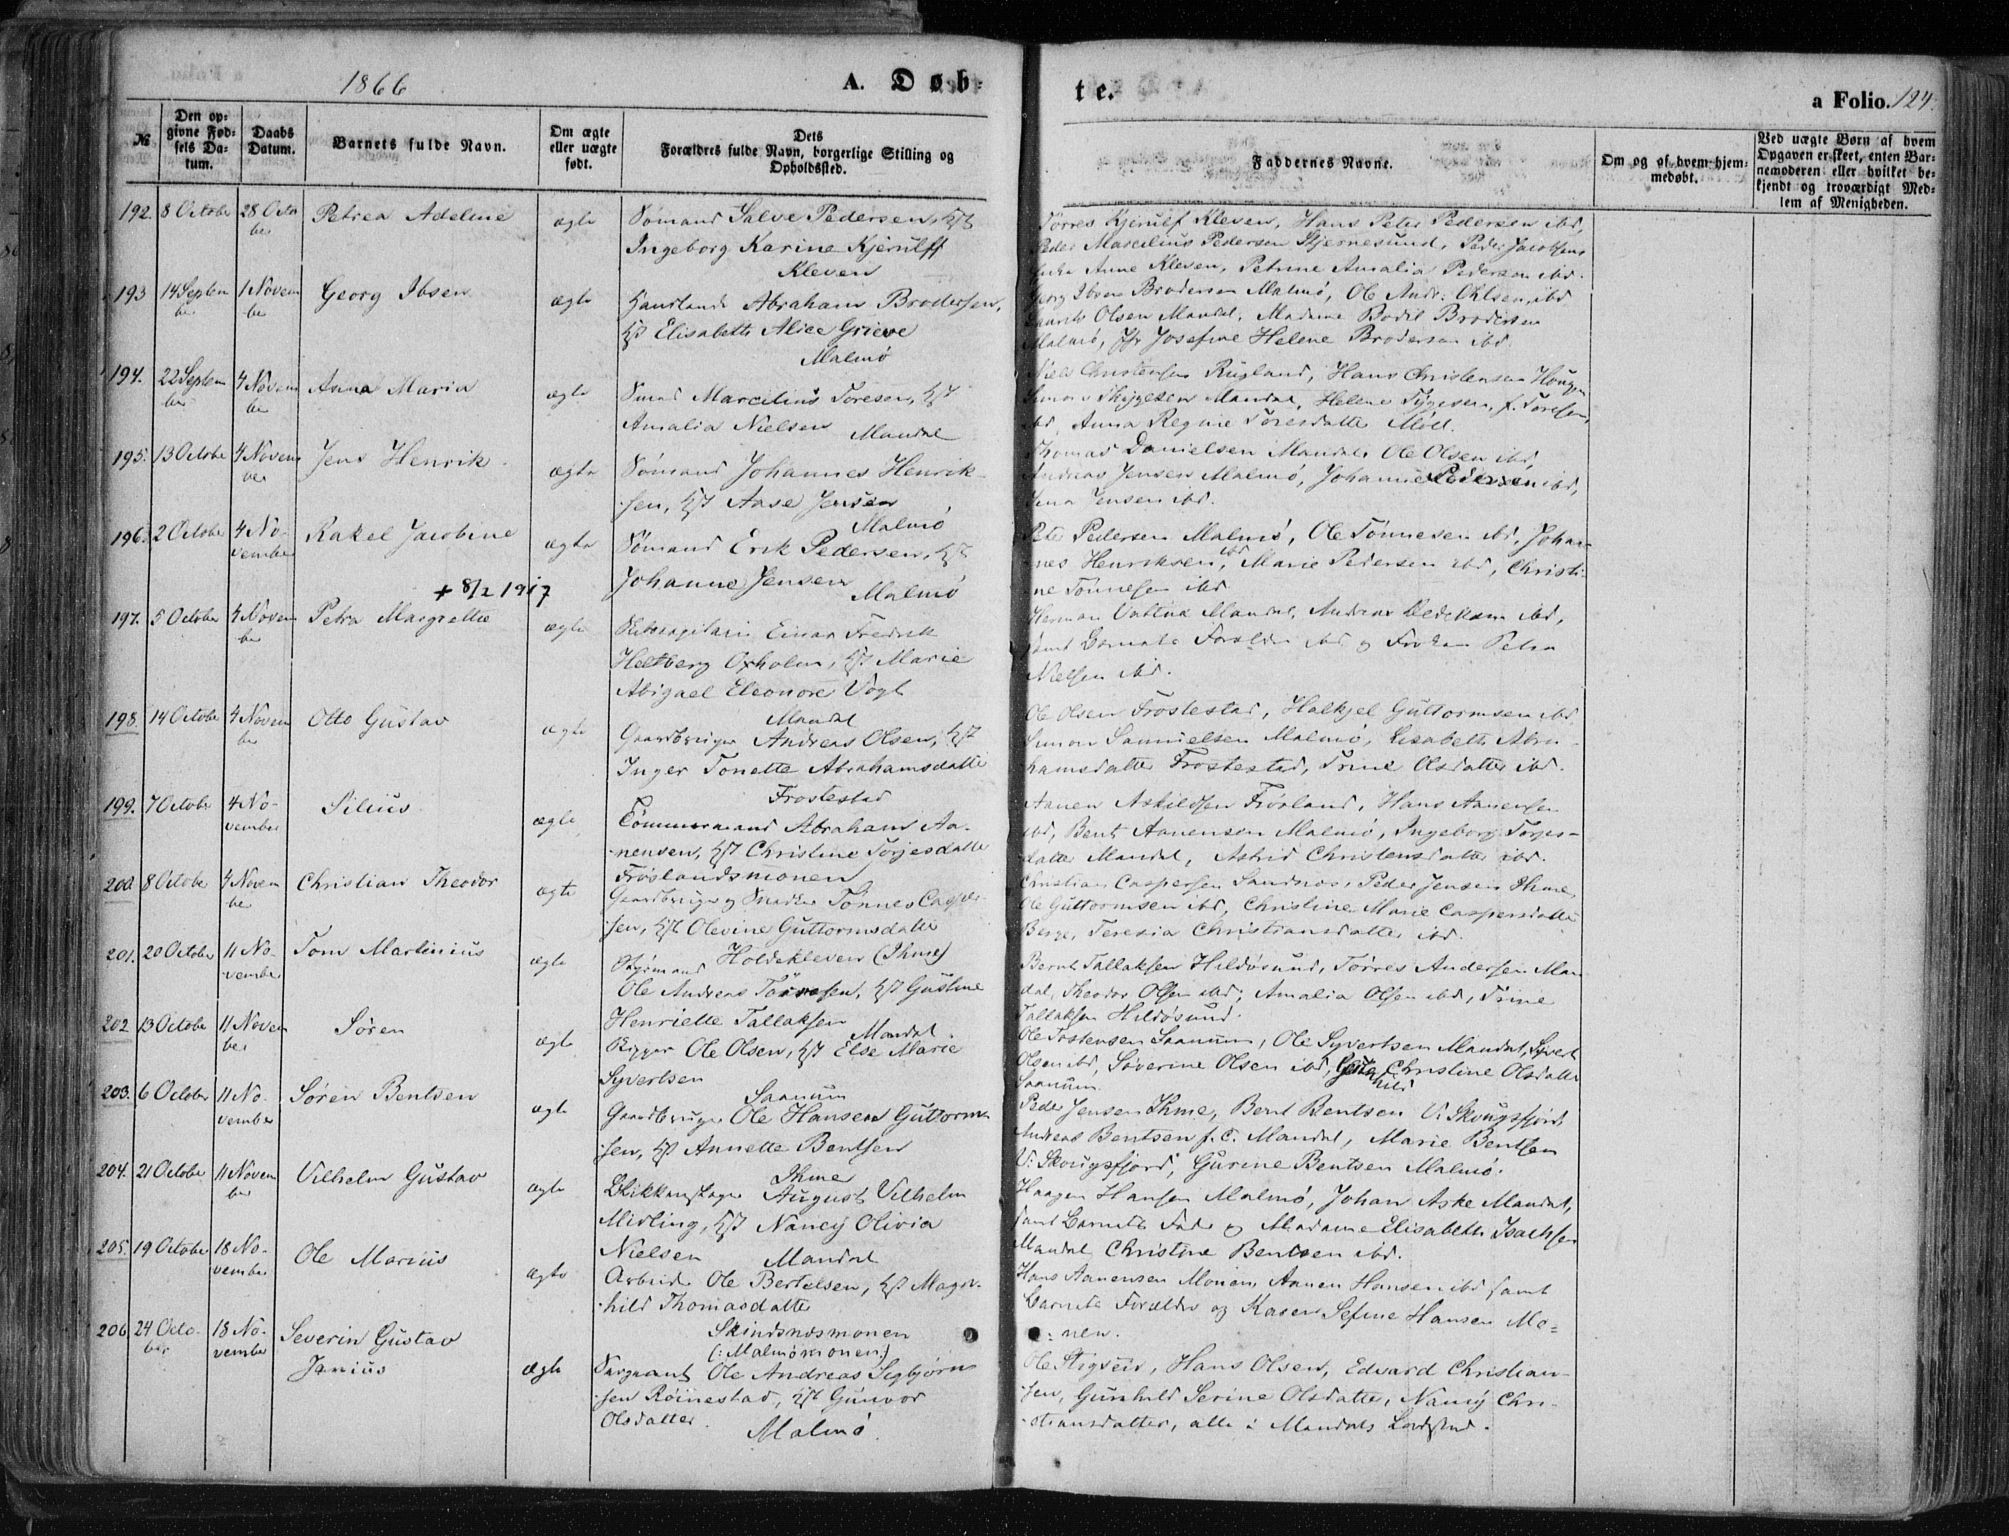 1866
A. Døb-
te.
a Folio. 124.
№
Den op-
givne Fød-
sels Da-
tum.
Daabs
Datum.
Barnets fulde Navn.
Om ægte
eller uægte
født.
Dets
Forældres fulde Navn, borgerlige Stilling og
Opholdssted.
Faddernes Navne.
Om og af hvem hjem-
medøbt.
Ved uægte Børn af hvem
Opgaven er skeet, enten Bar-
nemoderen eller hvilket be-
kjendt og troværdigt Med-
lem af Menigheden.
192. 8 October 28 Octo
ber
Petrea Adeline
ægte
Sømand Salve Pedersen, Hst
Ingeborg Karine Kjerulff
Kleven
Tørres Kjerulf Kleven, Hans Peter Pedersen ibd,
Peder Marcelius Pedersen Skjernesund, Peder Jacobsen
Anne Kleven, Petrine Amalia Pedersen ibd.
193 14 Septem
ber
1 Novem
ber
Georg Ibsen
ægte
Handlende Abraham Brodersen,
Hst Elisabeth Alice Grieve
Malmø
Georg Ibsen Brodersen Malmø, Ole Andr. Ohlsen, ibd
Laurits Olsen Mandal, Madame Bodil Brodersen
Malmø, Jfr Josefine Helene Brodersen ibd.
194. 22 Septem
ber
4 Novem
ber
Anna Maria
ægte
Smed Marcelius Toresen, Hst
Amalia Nielsen
Mandal
Niels Christensen Rugland, Hans Christensen Hougen
Simon Thygesen Mandal, Helene Tygesen, f. Toresen,
ibd, Anna Regine Toresdatter Møll.
195. 13 Octobe 4 Novem
ber
Jens Henrik.
ægte
Sømand Johannes Henrik-
sen, Hst Aase Jensen
Malmø
Thomas Danielsen Mandal, Ole Olsen ibd,
Andreas Jensen Malmø, Johanne Pedersen ibd,
Jensen ibd.
196. 2 October 4 No-
vember
Rakel Jacobine
ægte
Sømand Erik Pedersen, Hst
Johanne Jensen
Malmø
Peter Pedersen Malmø, Ole Tønnesen ibd, Johan-
nes Henriksen, ibd, Marie Pedersen ibd, Christi-
ne Tønnesen ibd
+ 8/2 1917
197. 5 October 4 Novem
ber
Petra Margrethe
ægte
Einar Fredrik
Heltberg Oxholm, Hst Marie
Abigael Eleonore Vogt
Mandal
Herman Mandal, Andreas ibd,
samt Barnets Forældre ibd og Frøken Petra
Nielsen ibd.
198. 14 October 4 Novem
ber
Otto Gustav
ægte
Gaardbruger Andreas Olsen, Hst
Inger Tonette Abrahamsdatter
Frostestad
Ole Olsen Frostestad, Halkjel Guttormsen ibd,
Simon Samuelsen Malmø, Lisabeth Abra-
hamsdatter Frostestad, Trine Olsdatter ibd.
199. 7 October 4 No-
vember
Silius
ægte
Tømmermand Abraham Aa-
nensen, Hst Christine Torjesdatter
Frøslandsmonen
Aanen Askildsen Frøsland, Hans Aanensen
ibd, Bent Aanensen Malmø, Ingeborg Torjes-
datter Mandal, Astrid Christensdatter ibd.
200. 8 Octobe 4 Novem
ber
Christian Theodor
ægte
Gaardbruger og Snedker Tønnes Casper-
sen, Hst Olevine Guttormsdatter
Holdekleven (Ihme)
Christian Caspersen Sandnæs, Peder Jensen Ihme,
Ole Guttormsen ibd, Christine Marie Caspersdatter
Berge, Teresia Christiansdatter ibd.
201. 20 October 11 No-
vember
Tom Martinius
ægte
Styrmand
Ole Andreas Tørresen, Hst Gustine
Henriette Tallaksen
Mandal.
Bernt Tallaksen Hildøsund, Tørres Andersen Man
dal, Theodor Olsen ibd; Amalia Olsen ibd, Trine
Tallaksen Hildøsund.
202 13 Octobe 11 Novem
ber
Søren
ægte
Rigger Ole Olsen, Hst Else Marie
Syvertsen
Saanum
Ole Tostensen Saanum, Ole Syvertsen Mandal, Syvert
Olsen ibd, Søverine Olsen ibd, Christine Olsdatter
Saanum.
203. 6 October 11 No-
vember
Søren Bentsen
ægte
Gaardbruger Ole Hansen Guttorm-
sen, Hst Annette Bentsen
Ihme
Peder Jensen Ihme, Bernt Bentsen V. Skougsfjord
Andreas Bentsen f. C. Mandal, Marie Bentsen
V. Skougsfjord, Gurine Bentsen Malmø.
204. 21 Octobe 11 Novem
ber
Vilhelm Gustav
ægte
Blikkenslager August Vilhelm
Midling, Hst Nancy Olivia
Nielsen
Mandal
Haagen Hansen Malmø, Johan Aske Mandal,
samt Barnets Fader og Madame Elisabeth Isachsen
Mandal, Christine Bentsen ibd.
205. 19 October 18 No-
vember
Ole Marius
ægte
Arbeider Ole Bertelsen, Hst Magn-
hild Thomasdatter
Skindsnæsmonen
(: Malmømonen:)
Hans Aanensen Monen, Aanen Hansen ibd samt
Barnets Forældre og Karen Sefine Hansen Mo=
nen.
206 24 Octo-
ber
18 No-
vember
Severin Gustav
Janius
ægte
Sergeant Ole Andreas Sigbjørn-
sen Røinestad, Hst Gunvor
Olsdatter.
Malmø.
Ole Stigsen, Hans Olsen, Edvard Christian-
sen, Gunhild Serine Olsdatter, Nancy Chri-
stiansdatter, alle i Mandals Landsogn.